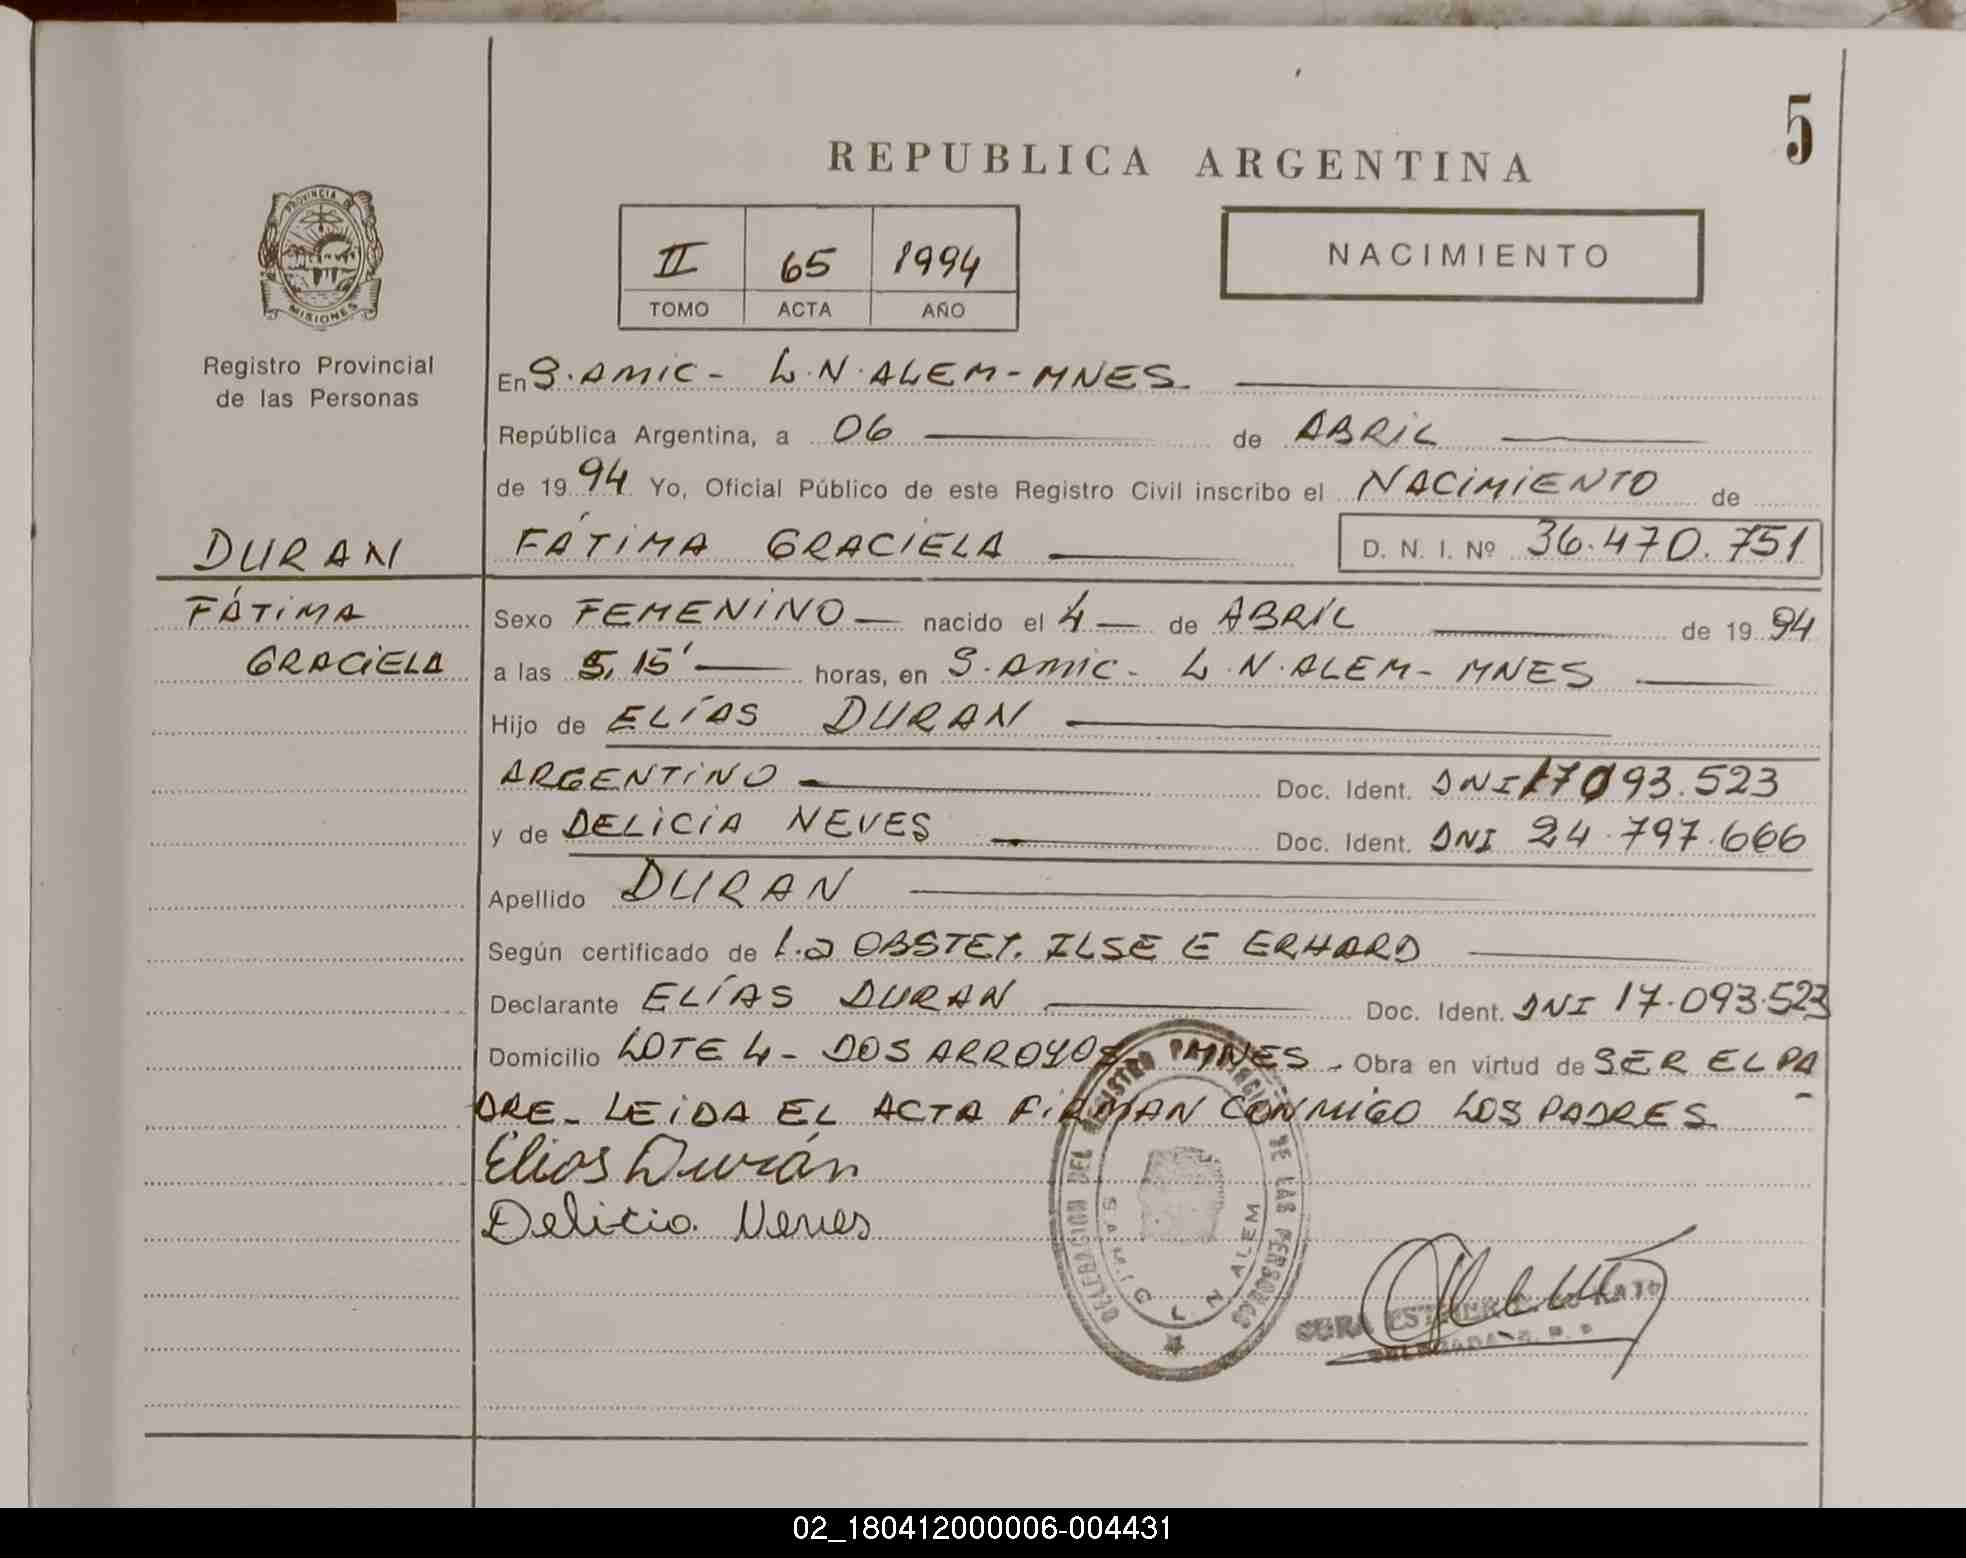 5
REPUBLICA ARGENTINA
PROVINCIA DE
MISIONES
II 65 1994
TOMO ACTA AÑO
NACIMIENTO
Registro Provincial
de las Personas
En S. AMIC - L.N. ALEM - MNES.
República Argentina, a 06 de ABRIL
de 1994 Yo, Oficial Público de este Registro Civil inscribo el NACIMIENTO de
DURAN FÁTIMA GRACIELA D. N. I. Nº 36.470.751
FÁTIMA Sexo FEMENINO nacido el 4 de ABRIL de 1994
GRACIELA a las 5,15' horas, en S. AMIC - L.N. ALEM - MNES
Hijo de ELÍAS DURAN
ARGENTINO Doc. Ident. DNI 17093.523
y de DELICIA NEVES Doc. Ident. DNI 24.797.666
Apellido DURAN
Según certificado de OBSTET. ILSE E ERHARD
Declarante ELÍAS DURAN Doc. Ident. DNI 17.093.523
Domicilio LOTE 4 - DOS ARROYOS MNES. Obra en virtud de SER EL PA
DRE - LEIDA EL ACTA FIRMAN CONMIGO LOS PADRES
Elias Durán
Delicia Neves
DELEGACION DEL REGISTRO PROVINCIAL DE LAS PERSONAS
S. AMIC L N ALEM
02_180412000006-004431